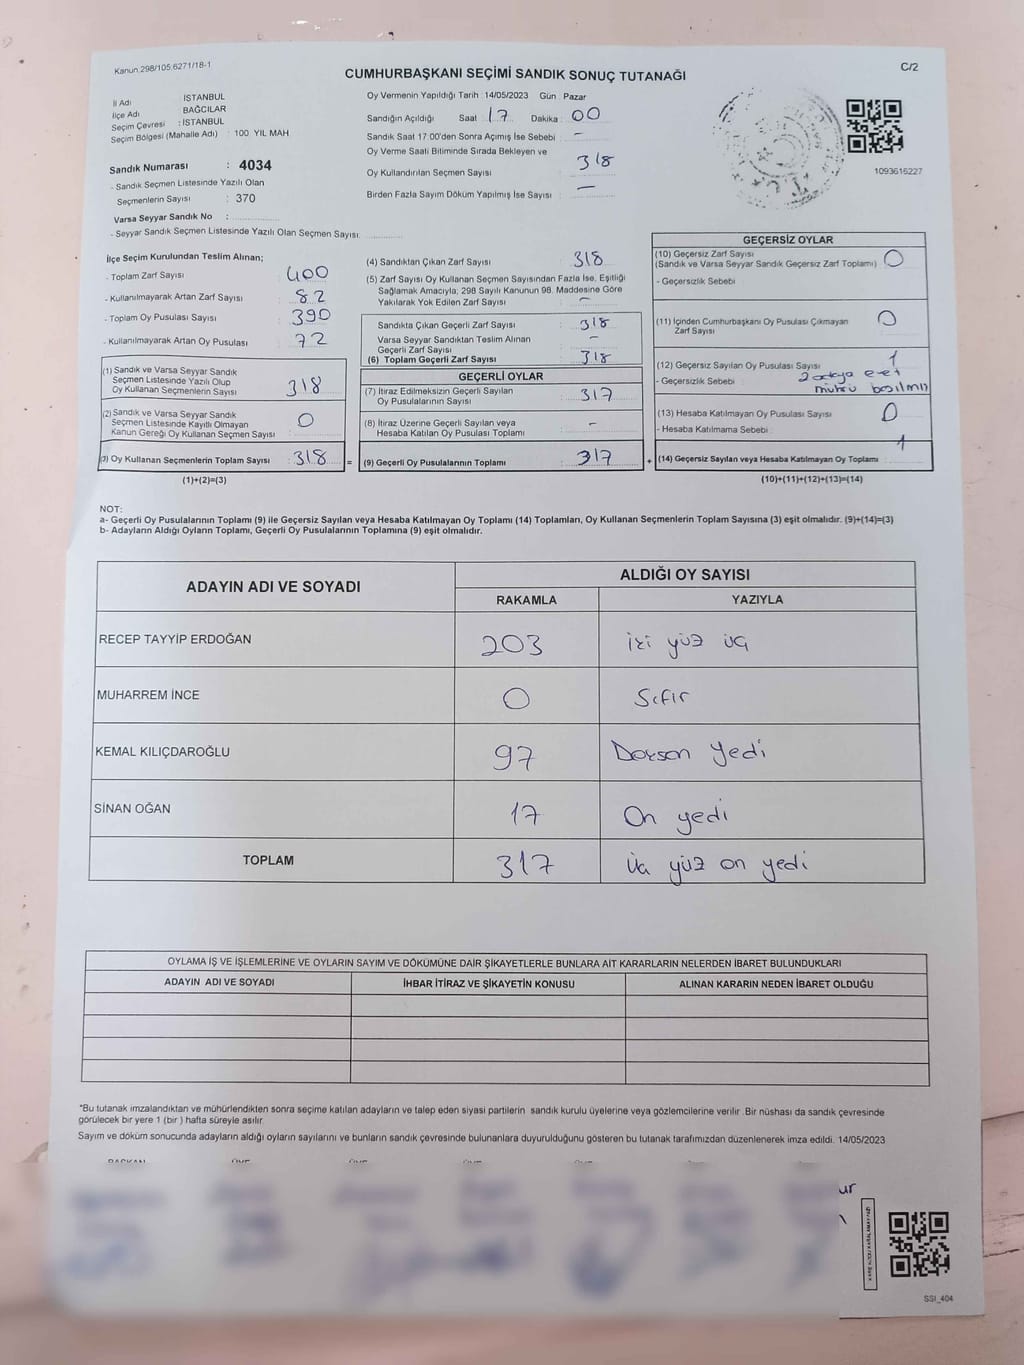 Kanun 298/105;6271/18-1
C/2
CUMHURBAŞKANI SEÇİMİ SANDIK SONUÇ TUTANAĞI
İl Adı İSTANBUL
İlçe Adı BAĞCILAR
Seçim Çevresi : İSTANBUL
Seçim Bölgesi (Mahalle Adı) : 100. YIL MAH.
Sandık Numarası : 4034
- Sandık Seçmen Listesinde Yazılı Olan
Seçmenlerin Sayısı : 370
Varsa Seyyar Sandık No :
- Seyyar Sandık Seçmen Listesinde Yazılı Olan Seçmen Sayısı:
Oy Vermenin Yapıldığı Tarih : 14/05/2023 Gün : Pazar
Sandığın Açıldığı Saat : 17 Dakika : 00
Sandık Saat 17:00'den Sonra Açımış İse Sebebi : -
Oy Verme Saati Bitiminde Sırada Bekleyen ve
Oy Kullandırılan Seçmen Sayısı : 318
Birden Fazla Sayım Döküm Yapılmış İse Sayısı : -
1093616227
İlçe Seçim Kurulundan Teslim Alınan;
- Toplam Zarf Sayısı : 400
- Kullanılmayarak Artan Zarf Sayısı : 82
- Toplam Oy Pusulası Sayısı : 390
- Kullanılmayarak Artan Oy Pusulası : 72
(1) Sandık ve Varsa Seyyar Sandık
Seçmen Listesinde Yazılı Olup
Oy Kullanan Seçmenlerin Sayısı : 318
(2) Sandık ve Varsa Seyyar Sandık
Seçmen Listesinde Kayıtlı Olmayan
Kanun Gereği Oy Kullanan Seçmen Sayısı : 0
(3) Oy Kullanan Seçmenlerin Toplam Sayısı : 318
(1)+(2)=(3)
(4) Sandıktan Çıkan Zarf Sayısı : 318
(5) Zarf Sayısı Oy Kullanan Seçmen Sayısından Fazla İse, Eşitliği
Sağlamak Amacıyla; 298 Sayılı Kanunun 98. Maddesine Göre
Yakılarak Yok Edilen Zarf Sayısı : -
Sandıkta Çıkan Geçerli Zarf Sayısı : 318
Varsa Seyyar Sandıktan Teslim Alınan
Geçerli Zarf Sayısı : -
(6) Toplam Geçerli Zarf Sayısı : 318
GEÇERLİ OYLAR
(7) İtiraz Edilmeksizin Geçerli Sayılan
Oy Pusulalarının Sayısı : 317
(8) İtiraz Üzerine Geçerli Sayılan veya
Hesaba Katılan Oy Pusulası Toplamı : -
= (9) Geçerli Oy Pusulalarının Toplamı : 317
GEÇERSİZ OYLAR
(10) Geçersiz Zarf Sayısı
(Sandık ve Varsa Seyyar Sandık Geçersiz Zarf Toplamı) : 0
- Geçersizlik Sebebi
(11) İçinden Cumhurbaşkanı Oy Pusulası Çıkmayan : 0
Zarf Sayısı
(12) Geçersiz Sayılan Oy Pusulası Sayısı : 1
- Geçersizlik Sebebi : 2 adaya evet
mührü basılmış
(13) Hesaba Katılmayan Oy Pusulası Sayısı : 0
- Hesaba Katılmama Sebebi :
+ (14) Geçersiz Sayılan veya Hesaba Katılmayan Oy Toplamı : 1
(10)+(11)+(12)+(13)=(14)
NOT:
a- Geçerli Oy Pusulalarının Toplamı (9) ile Geçersiz Sayılan veya Hesaba Katılmayan Oy Toplamı (14) Toplamları, Oy Kullanan Seçmenlerin Toplam Sayısına (3) eşit olmalıdır. (9)+(14)=(3)
b- Adayların Aldığı Oyların Toplamı, Geçerli Oy Pusulalarının Toplamına (9) eşit olmalıdır.
ADAYIN ADI VE SOYADI ALDIĞI OY SAYISI
RAKAMLA YAZIYLA
RECEP TAYYİP ERDOĞAN 203 iki yüz üç
MUHARREM İNCE 0 Sıfır
KEMAL KILIÇDAROĞLU 97 Doksan yedi
SİNAN OĞAN 17 On yedi
TOPLAM 317 üç yüz on yedi
OYLAMA İŞ VE İŞLEMLERİNE VE OYLARIN SAYIM VE DÖKÜMÜNE DAİR ŞİKAYETLERLE BUNLARA AİT KARARLARIN NELERDEN İBARET BULUNDUKLARI
ADAYIN ADI VE SOYADI İHBAR İTİRAZ VE ŞİKAYETİN KONUSU ALINAN KARARIN NEDEN İBARET OLDUĞU
*Bu tutanak imzalandıktan ve mühürlendikten sonra seçime katılan adayların ve talep eden siyasi partilerin sandık kurulu üyelerine veya gözlemcilerine verilir. Bir nüshası da sandık çevresinde
görülecek bir yere 1 (bir ) hafta süreyle asılır.
Sayım ve döküm sonucunda adayların aldığı oyların sayılarını ve bunların sandık çevresinde bulunanlara duyurulduğunu gösteren bu tutanak tarafımızdan düzenlenerek imza edildi. 14/05/2023
SSI_404